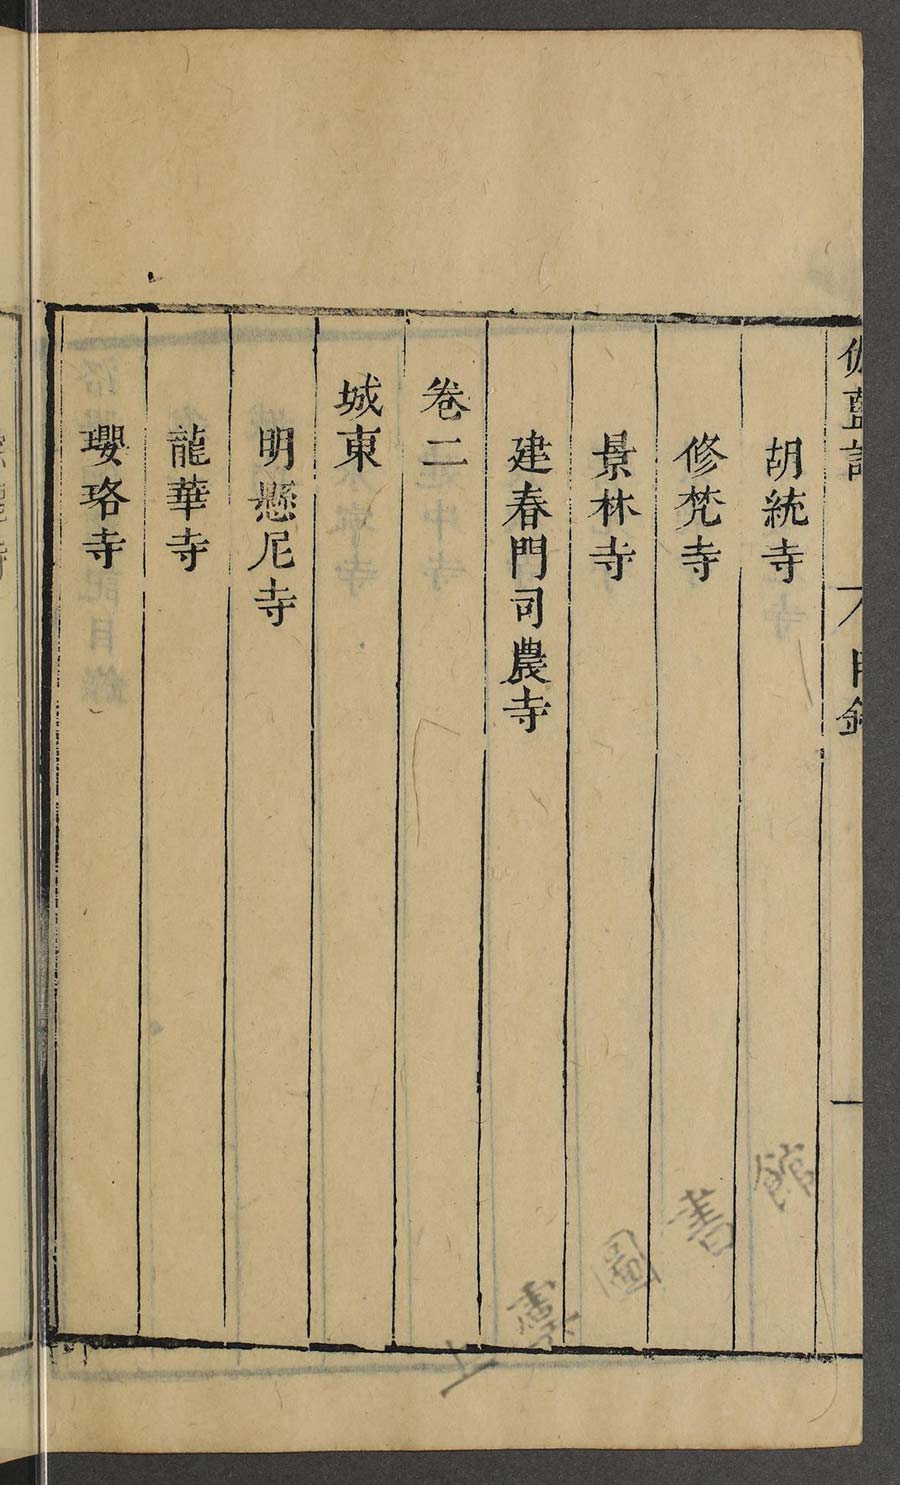 伽藍記 目錄 一
胡統寺
修梵寺
景林寺
建春門司農寺
卷二
城東
明懸尼寺
龍華寺
瓔珞寺
上虞圖書館